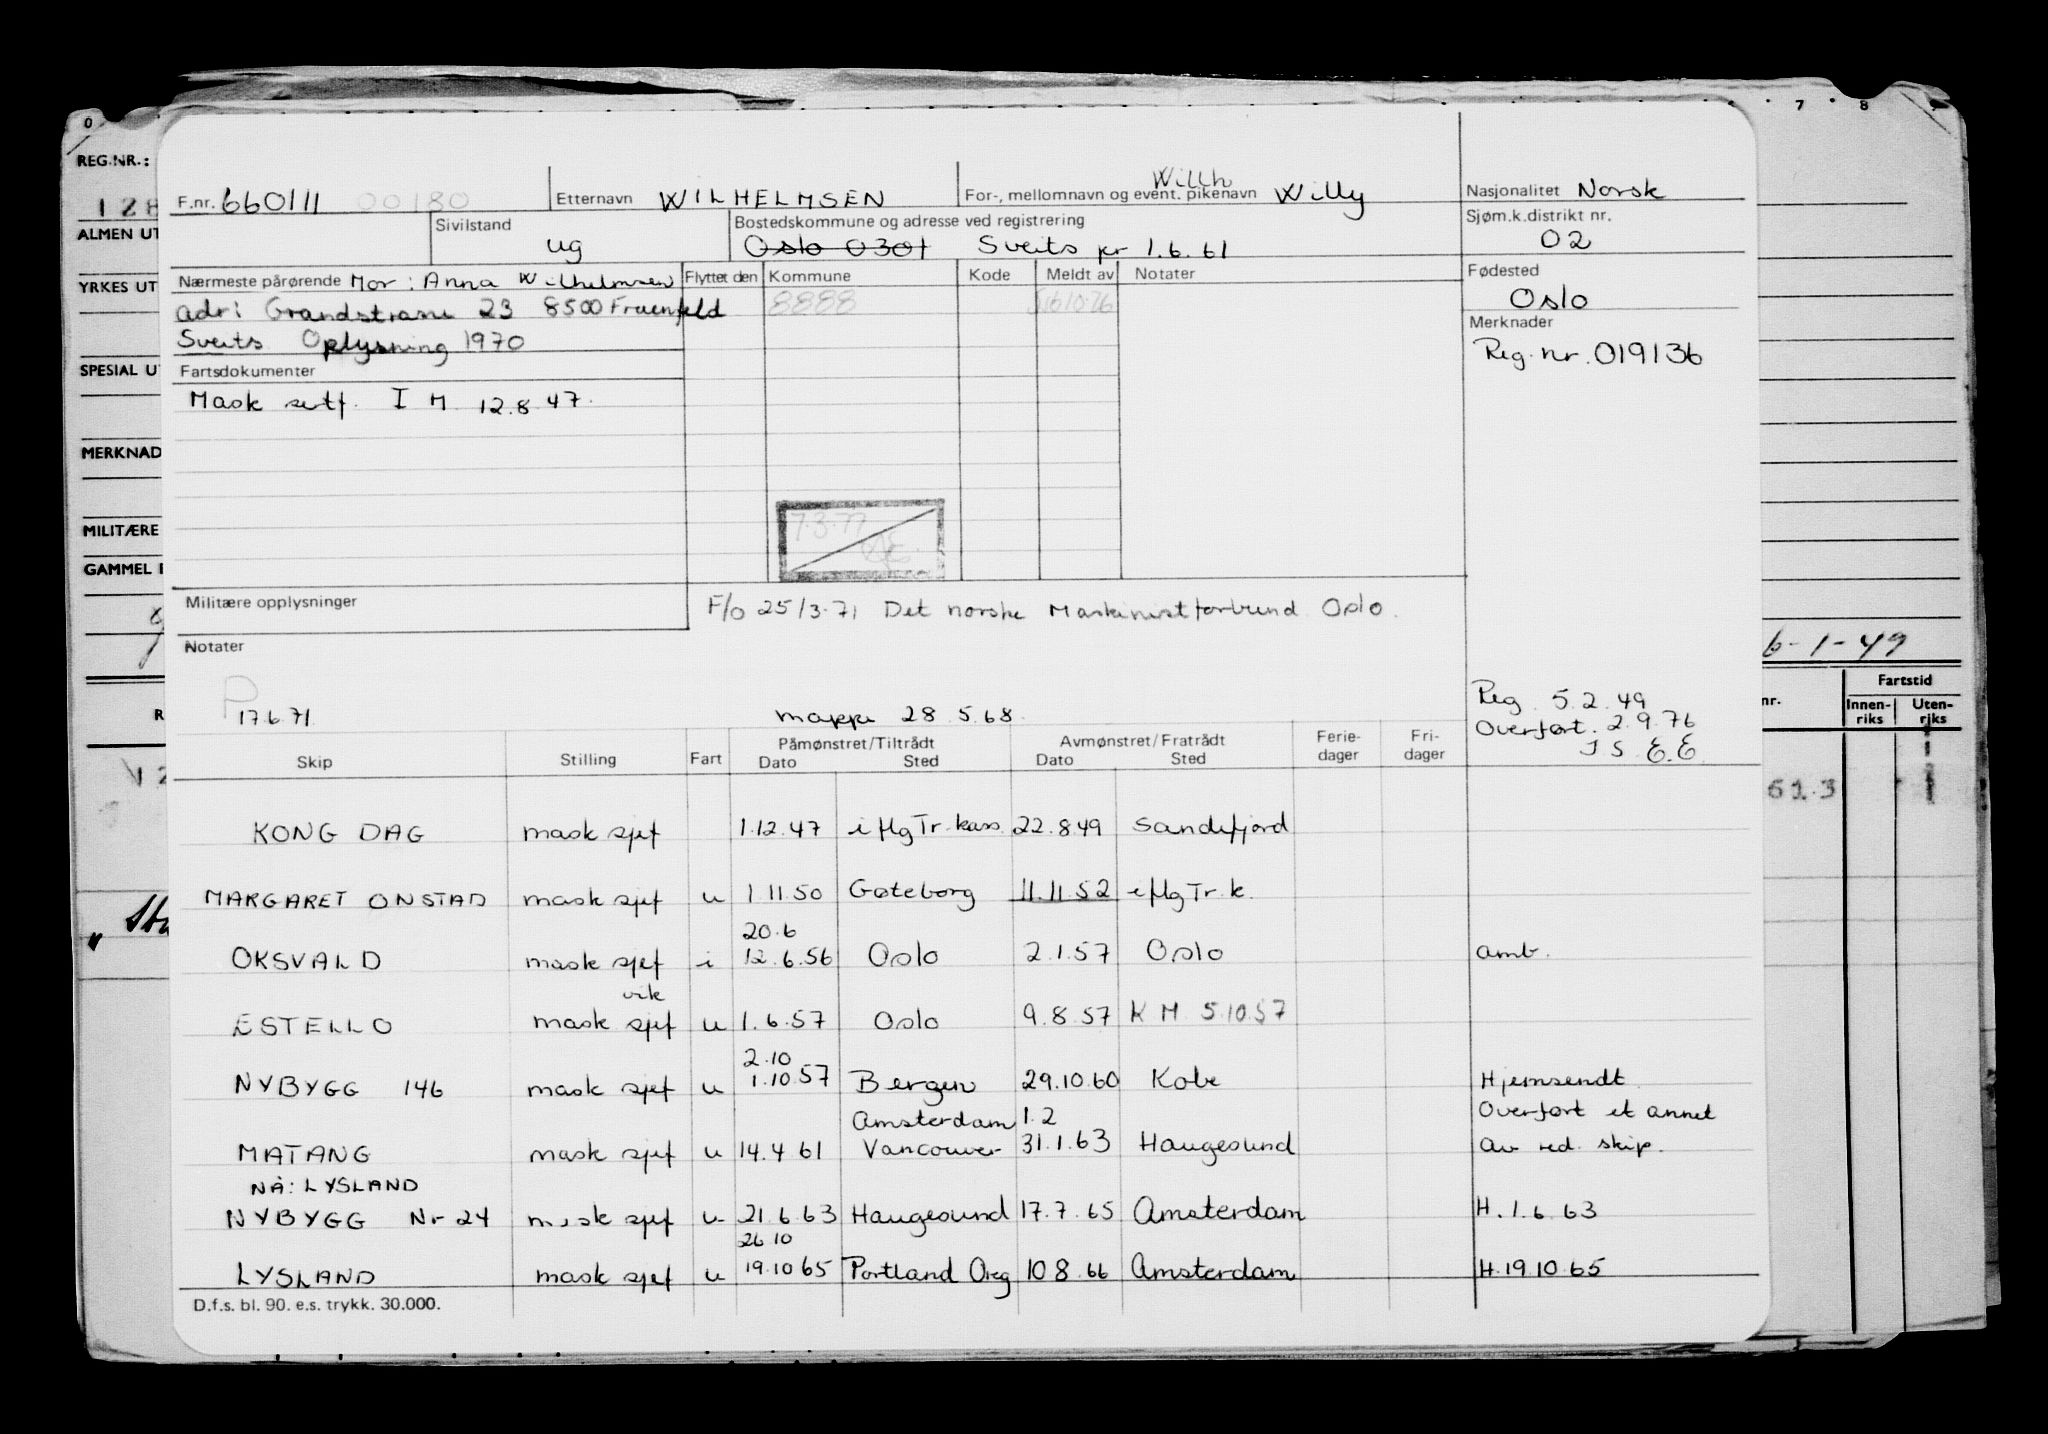 0 7 8
REG.NR.:
128
ALMEN UT
YRKES UT
SPESIAL UT
MERKNAD
MILITÆRE
GAMMEL
F.nr. 660111 00180 Etternavn WILHELMSEN For-, mellomnavn og event. pikenavn Willy Willh Nasjonalitet Norsk
Sivilstand ug Bostedskommune og adresse ved registrering Oslo 0301 Sveits pr 1.6.61 Sjøm.k.distrikt nr. 02
Nærmeste pårørende Mor: Anna Wilhelmsen Flyttet den Kommune Kode Meldt av Notater Fødested
adr: Grandstrasse 23 8500 Frauenfeld 8888 Oslo
Sveits Oplysning 1970 Merknader
Reg. nr. 019136
Fartsdokumenter
Mask sertf. I M 12.8.47.
7.3.77
Militære opplysninger F/o 25/3-71 Det norske Maskinistforbund Oslo.
Notater 6-1-49
P 17.6.71 mappe 28.5.68. Reg 5.2.49
Overført. 2.9.76
J S. E.E.
nr. Fartstid
Innen-riks Uten-riks
Skip Stilling Fart Påmønstret/Tiltrådt Dato Sted Avmønstret/Fratrådt Dato Sted Ferie-dager Fri-dager
61.3
KONG DAG mask sjef 1.12.47 i flg Tr.kass. 22.8.49 Sandefjord
MARGARET ONSTAD mask sjef u 1.11.50 Gøteborg 11.11.52 i flg Tr.k.
20.6
OKSVALD mask sjef i 12.6.56 Oslo 2.1.57 Oslo amb.
vik
ESTELLO mask sjef u 1.6.57 Oslo 9.8.57 K M 5.10.57
2.10
NYBYGG 146 mask sjef u 1.10.57 Bergen 29.10.60 Kobe Hjemsendt
Amsterdam 1.2 Overført et annet
MATANG mask sjef u 14.4.61 Vancouver 31.1.63 Haugesund av red. skip.
NÅ: LYSLAND
NYBYGG Nr 24 mask sjef u 21.6.63 Haugesund 17.7.65 Amsterdam H. 1.6.63
26.10
LYSLAND mask sjef u 19.10.65 Portland Oreg 10.8.66 Amsterdam H. 19.10.65
D.f.s. bl. 90. e.s. trykk. 30.000.